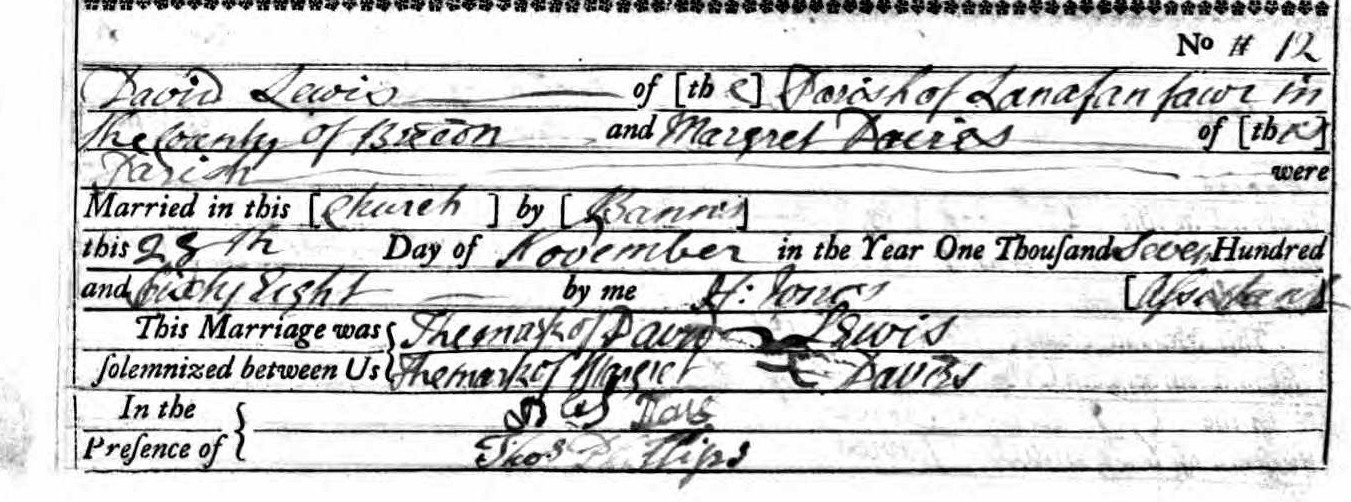 No # 12
David Lewis of [the] Parish of Lanafan fawr in
the County of Brecon and Margret Davies of [this]
Parish were
Married in this [Church] by [Banns]
this 28th Day of November in the Year One Thouſand Seven Hundred
and Sixty Eight by me H: Jones [Assistant]
This Marriage was The mark of David Lewis
ſolemnized between Us The mark of Margret Davies
In the
Preſence of Thos Phillips